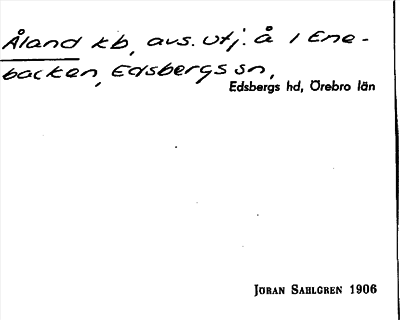 Åland kb, avs. utj. å 1 Ene-
backen, Edsbergs sn,
Edsbergs hd, Örebro län
JÖRAN SAHLGREN 1906